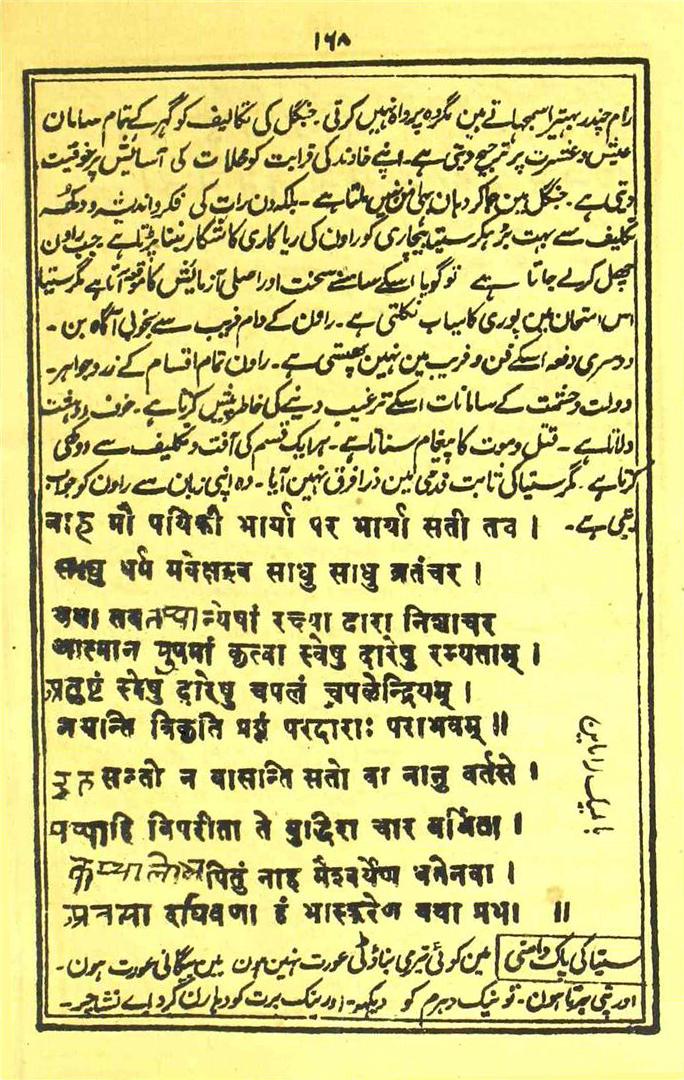 ۱۶۸
رام چندر بہتیرا سمجھاتے ہین مگر وہ پرواہ نہین کرتی ۔ جنگل کی تکالیف کو گہر کے تمام سامان
عیش و عشرت پر ترجیح دیتی ہے ۔ اپنے خاوند کی قرابت کو محلات کی آسائیش پر فوقیت
دیتی ہے ۔ جنگل مین جا کر وہان بہی نہین ملتا ہے ۔ بلکہ دن رات کی فکر و اندیشہ و دکھہ
تکلیف سے بہت بڑہکر ستیا بیچاری کو راون کی ریاکاری کا شکار بننا پڑتا ہے جب راون
چھل کر لے جاتا ہے تو گویا اسکے سامنے سخت اور اصلی آزمائیش کا موقع آتا ہے مگر ستیا
اس امتحان مین پوری کامیاب نکلتی ہے ۔ راون کے دام فریب سے بخوبی آگاہ بن ۔
دوسری دفعہ اسکے فن و فریب مین نہین پھنستی ہے ۔ راون تمام اقسام کے زر و جواہر ۔
دولت و حشمت کے سامانات اسکے ترغیب دینے کی خاطر پیش کرتا ہے ۔ خوف و دہشت
دلاتا ہے ۔ قتل و موت کا پیغام سناتا ہے ۔ ہر ایک قسم کی آفت و تکلیف سے دوکھی
کرتا ہے ۔ مگر ستیا کی ثابت قدمی مین ذرا فرق نہین آیا ۔ وہ اپنی زبان سے راون کو جواب
دیتی ہے ۔
नाह मौ पयिकी भार्या पर भार्या सती तव ।
साधु धर्म मवेक्षस्व साधु साधु व्रतंचर ।
यथा तव तथान्येषां रक्ष्या दारा निशाचर
आत्मान मुपमां कृत्वा स्वेषु दारेषु रम्यताम् ।
अतुष्टं स्वेषु दारेषु चपलं चपलेन्द्रियम् ।
नयन्ति निकृति प्रज्ञं परदाराः पराभवम् ॥
इह सन्तो न वासन्ति सतो वा नानु वर्तसे ।
यथाहि विपरीता ते बुद्धिरा चार वर्जिता ।
पितुं नाह मैश्वर्येण धनेनवा ।
भास्करेण यथा प्रभा ॥
ستیا کی پاک دامنی مین کوئی تیری عورت نہین ہون مین بیگانی عورت ہون ۔
اور پتی برتا ہون ۔ تو نیک دہرم کو دیکھہ ۔ اور نیک برت کو دہارن کر دے اے نشاچر ۔